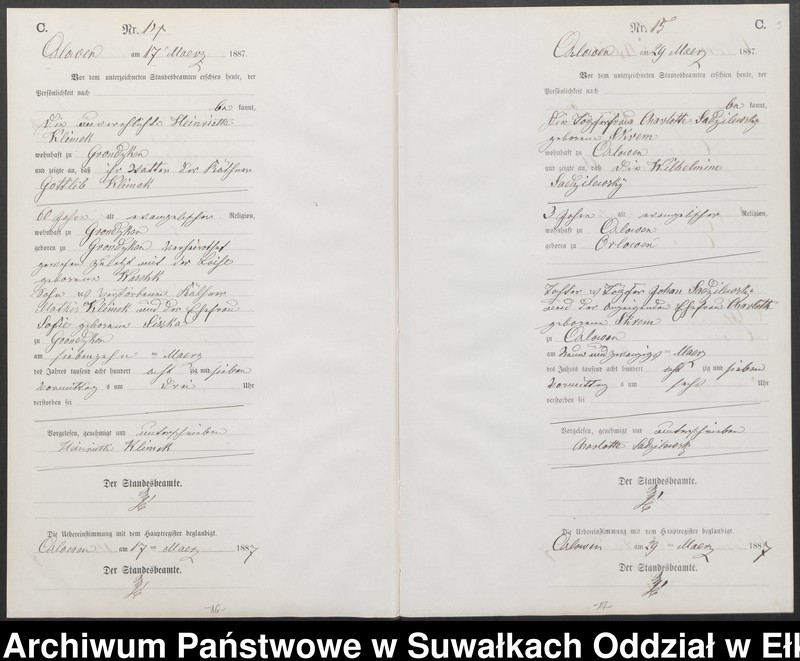 C.
Nr. 14
Orlowen am 17 Maerz 1887.
Vor dem unterzeichneten Standesbeamten erschien heute, der
Persönlichkeit nach
be kannt,
die unverehlichte Heinriette
Klimek
wohnhaft zu Grondzken
und zeigte an, daß ihr Vatter der Käthner
Gottlib Klimek
60 Jahre alt evangelischer Religion,
wohnhaft zu Grondzken
geboren zu Grondzken verheirathet
gewesen zuletzt mit der Loise
geborene
Sohn des verstorbenen Käthner
Mathes Klimek und der Ehefrau
Sofie geborene
zu Grondzken
am siebenzehn ten Maerz
des Jahres tausend acht hundert acht zig und sieben
Vormittag s um Drei Uhr
verstorben sei
Vorgelesen, genehmigt und unterschrieben
Heinriette Klimek
Der Standesbeamte.
Die Uebereinstimmung mit dem Hauptregister beglaubigt.
Orlowen am 17 ten Maerz 1887
Der Standesbeamte.
-16-
Nr. 15
C.
Orlowen am 29 Maerz 1887.
Vor dem unterzeichneten Standesbeamten erschien heute, der
Persönlichkeit nach
be kannt,
die Töpferfrau Charlotte Sadzilewsky
geborene Skrem
wohnhaft zu Orlowen
und zeigte an, daß die Wilhelmine
Sadzilewsky
3 Jahre alt evangelischer Religion,
wohnhaft zu Orlowen
geboren zu Orlowen
Tochter des Töpfer Johan Sadzilewsky
und der Anzeigenden Ehefrau Charlotte
geborene Skrem
zu Orlowen
am Neun und zwanzigs ten Maerz
des Jahres tausend acht hundert acht zig und sieben
Vormittag s um sechs Uhr
verstorben sei
Vorgelesen, genehmigt und unterschrieben
Charlotte Sadzilewsky
Der Standesbeamte.
Die Uebereinstimmung mit dem Hauptregister beglaubigt.
Orlowen am 29 ten Maerz 1887
Der Standesbeamte.
-17-
Archiwum Państwowe w Suwałkach Oddział w Ełk